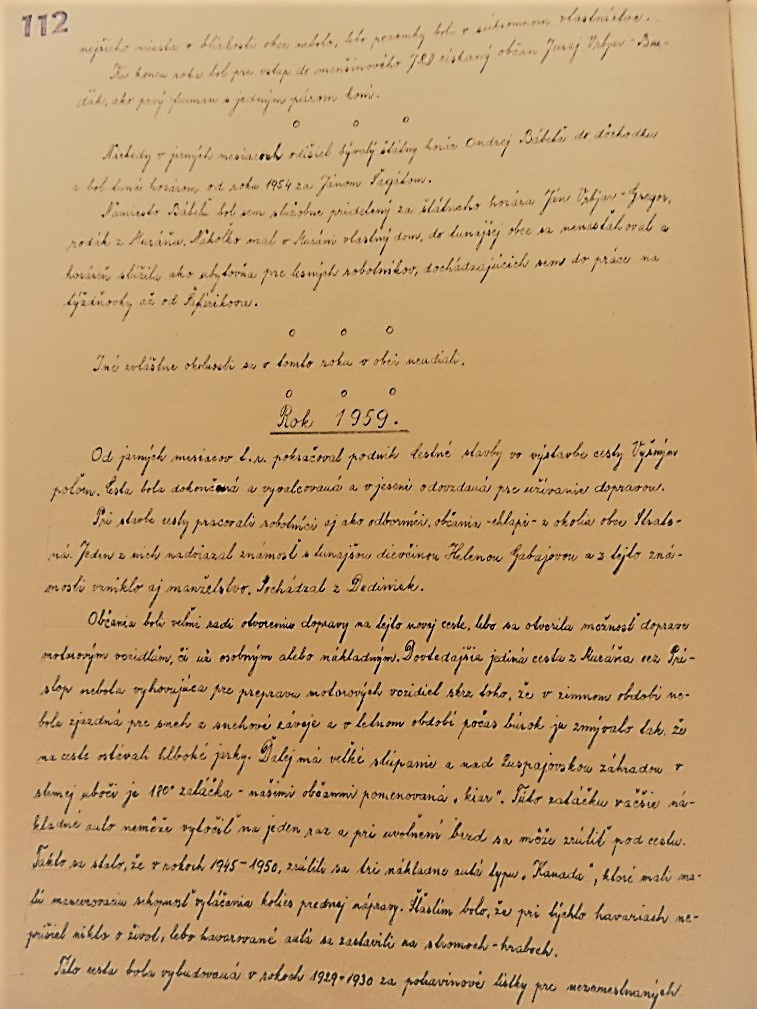 112
nejšieho miesta v blízkosti obce nebolo, lebo pozemky boli v súkromnom vlastníctve.
Ku koncu roka bol pre vstup do menšinového JRD získaný občan Juraj Vrbjar - Bur-
ďák, ako prvý furman s jedným párom koní.
o o o
Niekedy v jarných mesiacoch odišiel bývalý štátny horár Ondrej Bábeľa do dôchodku
a bol tunás horárom od roku 1954 za Jánom Šagátom.
Namiesto Bábelu bol sem služobne pridelený za štátneho horára Ján Vrbjar - Gregor,
rodák z Muráňa. Nakoľko mal v Muráni vlastný dom, do tunajšej obce sa nenasťahoval a
horáreň slúžila ako ubytovňa pre lesných robotníkov, dochádzajúcich sem do práce na
týždňovky až od Šafárikova.
o o o
Iné zvláštne okolnosti sa v tomto roku v obci neudiali.
o o o
Rok 1959.
Od jarných mesiacov t. r. pokračoval podnik lesné stavby vo výstavbe cesty Vyšným
poľom. Cesta bola dokončená a vyvalcovaná a v jeseni odovzdaná pre užívanie dopravou.
Pri stavbe cesty pracovali robotníci aj ako odborníci, občania - chlapi - z okolia obce Strate-
ná. Jeden z nich nadviazal známosť s tunajšou dievčinou Helenou Gabajovou a z tejto zná-
mosti vzniklo aj manželstvo. Pochádzal z Dediniek.
Občania boli veľmi radi otvoreniu dopravy na tejto novej ceste, lebo sa otvorila možnosť dopravy
motorovým vozidlám, či už osobným alebo nákladným. Dovtedajšia jediná cesta z Muráňa cez Prí-
slop nebola vyhovujúca pre prepravu motorových vozidiel skrz toho, že v zimnom období ne-
bola zjazdná pre sneh a snehové záveje a v letnom období počas búrok ju zmývalo tak, že
na ceste ostávali hlboké jarky. Ďalej má veľké stúpanie a nad Zuspajovskou záhradou v
strmej úbočí je 180° zatáčka - našimi občanmi pomenovaná „kiar“. Túto zatáčku väčšie ná-
kladné auto nemôže vytočiť na jeden raz a pri uvoľnení bŕzd sa môže zrútiť pod cestu.
Takto sa stalo, že v rokoch 1945-1950, zrútili sa tri nákladne autá typu „Kanada“, ktoré mali ma-
lú manevrovaciu schopnosť vytáčania kolies prednej nápravy. Šťastím bolo, že pri týchto haváriach ne-
prišiel nikto o život, lebo havarované autá sa zastavili na stromoch - hraboch.
Táto cesta bola vybudovaná v rokoch 1929-1930 za potravinové lístky pre nezamestnaných